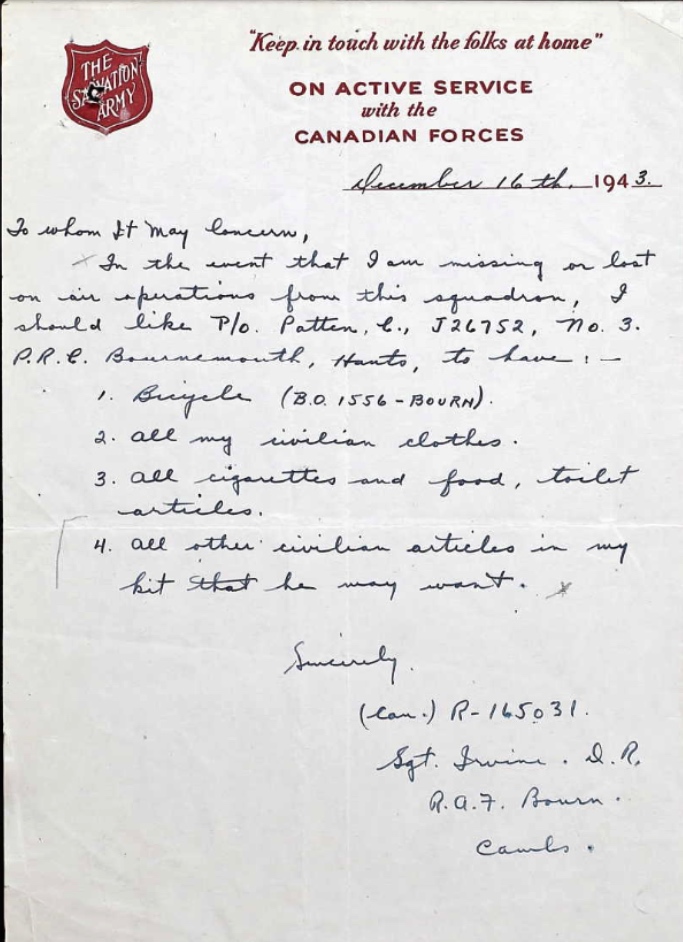 THE
SALVATION
ARMY
"Keep in touch with the folks at home"
ON ACTIVE SERVICE
with the
CANADIAN FORCES
December 16th, 1943.
To whom It May Concern,
In the event that I am missing or lost
on air operations from this squadron, I
should like P/O. Patten, C., J26752, No. 3.
P.R.C. Bournemouth, Hants, to have : -
1. Bicycle (B.O. 1556 - BOURN).
2. All my civilian clothes.
3. All cigarettes and food, toilet
articles.
4. All other civilian articles in my
kit that he may want.
Sincerely.
(Can.) R-165031.
Sgt. Irvine. D.R.
R.A.F. Bourn.
Cambs.